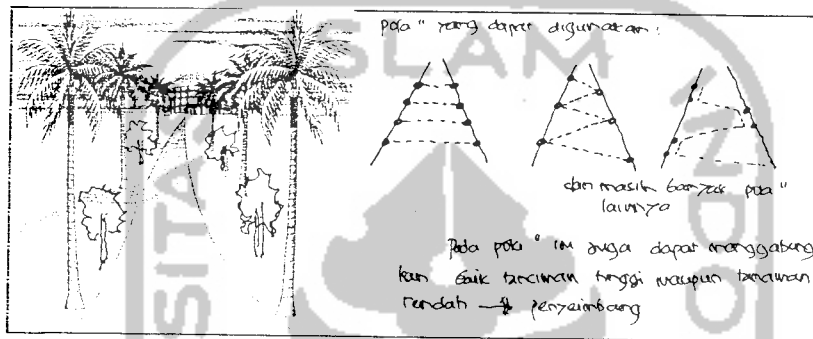 pola" yang dapat digunakan:
dan masih banyak pola"
lainnya
Pada pola" ini juga dapat menggabung
kan baik tanaman tinggi maupun tanaman
rendah → penyeimbang
ISLAM
SITAS
INDO